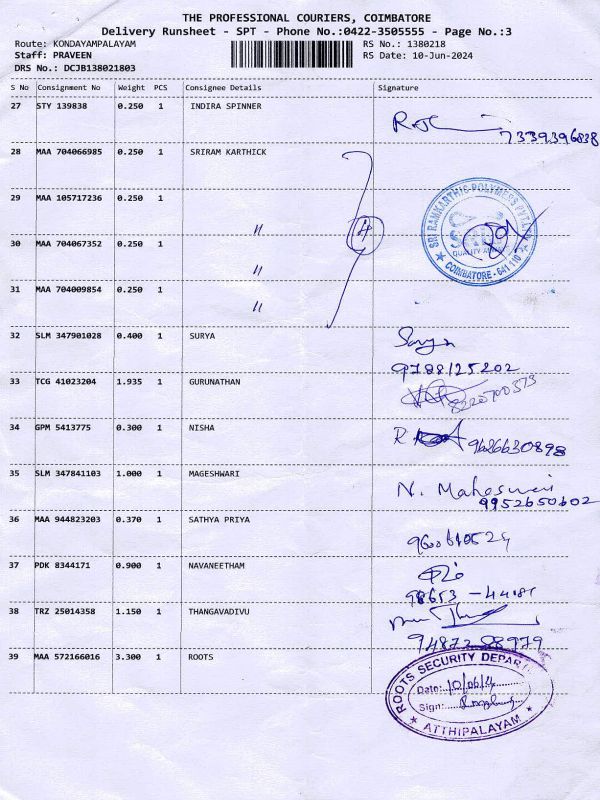 THE PROFESSIONAL COURIERS, COIMBATORE
Delivery Runsheet - SPT - Phone No.:0422-3505555 - Page No.:3
Route: KONDAYAMPALAYAM RS No.: 1380218
Staff: PRAVEEN RS Date: 10-Jun-2024
DRS No.: DCJB138021803
S No Consignment No Weight PCS Consignee Details Signature
27 STY 139838 0.250 1 INDIRA SPINNER
7339396838
28 MAA 704066985 0.250 1 SRIRAM KARTHICK
29 MAA 105717236 0.250 1
〃 4
SRI RAMKARTHIC POLYMERS PVT LTD
COIMBATORE - 641 110
30 MAA 704067352 0.250 1
〃
31 MAA 704009854 0.250 1
〃
32 SLM 347901028 0.400 1 SURYA
Surya
9788125202
33 TCG 41023204 1.935 1 GURUNATHAN
8220700373
34 GPM 5413775 0.300 1 NISHA
9626630898
35 SLM 347841103 1.000 1 MAGESHWARI
N. Maheswari
9952650602
36 MAA 944823203 0.370 1 SATHYA PRIYA
37 PDK 8344171 0.900 1 NAVANEETHAM
38 TRZ 25014358 1.150 1 THANGAVADIVU
94872 88979
39 MAA 572166016 3.300 1 ROOTS
ROOTS SECURITY DEPAR
Date: 10/06/24
Sign:
ATTHIPALAYAM